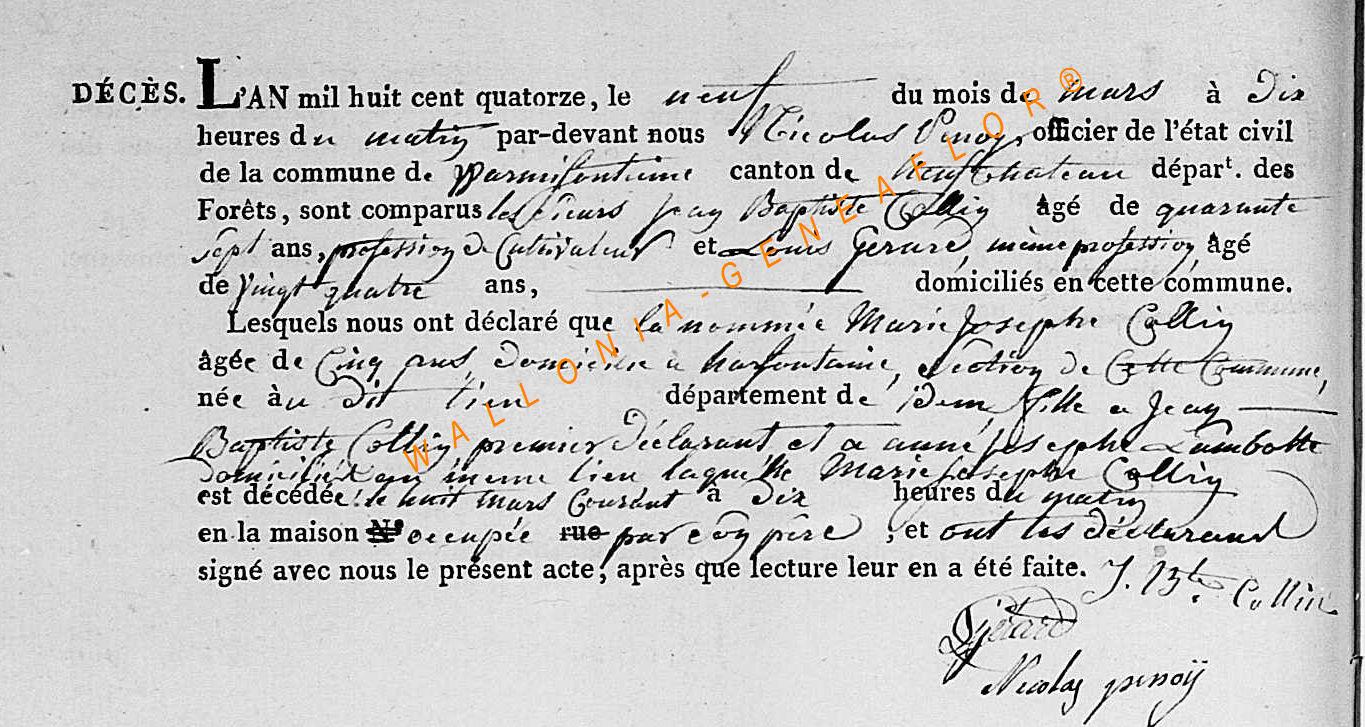 DÉCÈS. L'AN mil huit cent quatorze, le neuf du mois de mars à Dix
heures du matin par-devant nous Nicolas Penoy, officier de l'état civil
de la commune de Warmifontaine canton de neufchateau départ. des
Forêts, sont comparus les sieurs Jean Baptiste Collin âgé de quarante
sept ans, profession de Cultivateur et Louis Gerard, même profession, âgé
de Vingt quatre ans, domiciliés en cette commune.
Lesquels nous ont déclaré que la nommée Marie Josephe Collin
âgée de Cinq ans, domiciliée a harfontaine, section de Cette Commune,
née au Dit lieu département de idem fille a Jean
Baptiste Collin premier Déclarant et a anne Josephe Lambotte
domiciliés au meme lieu laquelle Marie Josephe Collin
est décédée le huit mars Courant à Dix heures du matin
en la maison N° occupée rue par son père, et ont les déclarans
signé avec nous le présent acte, après que lecture leur en a été faite. J. Bte. Collin
Gérard
Nicolas penoÿ
WALLONIA-GENEAFLOR®